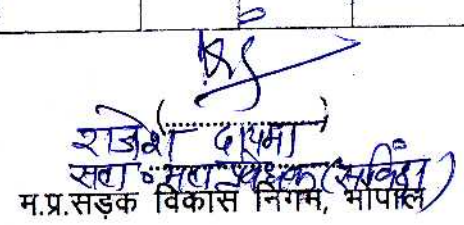 (............)
राजेश दायमा
सहा० महा प्रबंधक (संविदा)
म.प्र.सड़क विकास निगम, भोपाल